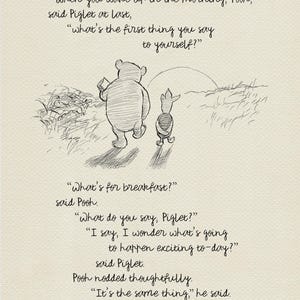 "When you wake up in the morning, Pooh,"
said Piglet at last,
"what's the first thing you say
to yourself?"
"What's for breakfast?"
said Pooh.
"What do you say, Piglet?"
"I say, I wonder what's going
to happen exciting to-day?"
said Piglet.
Pooh nodded thoughtfully.
"It's the same thing," he said